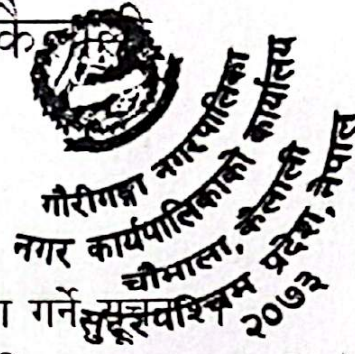 गौरीगङ्गा नगरपालिका
नगर कार्यपालिकाको कार्यालय
चौमाला, कैलाली
सुदूरपश्चिम प्रदेश, नेपाल
२०७३
गर्ने